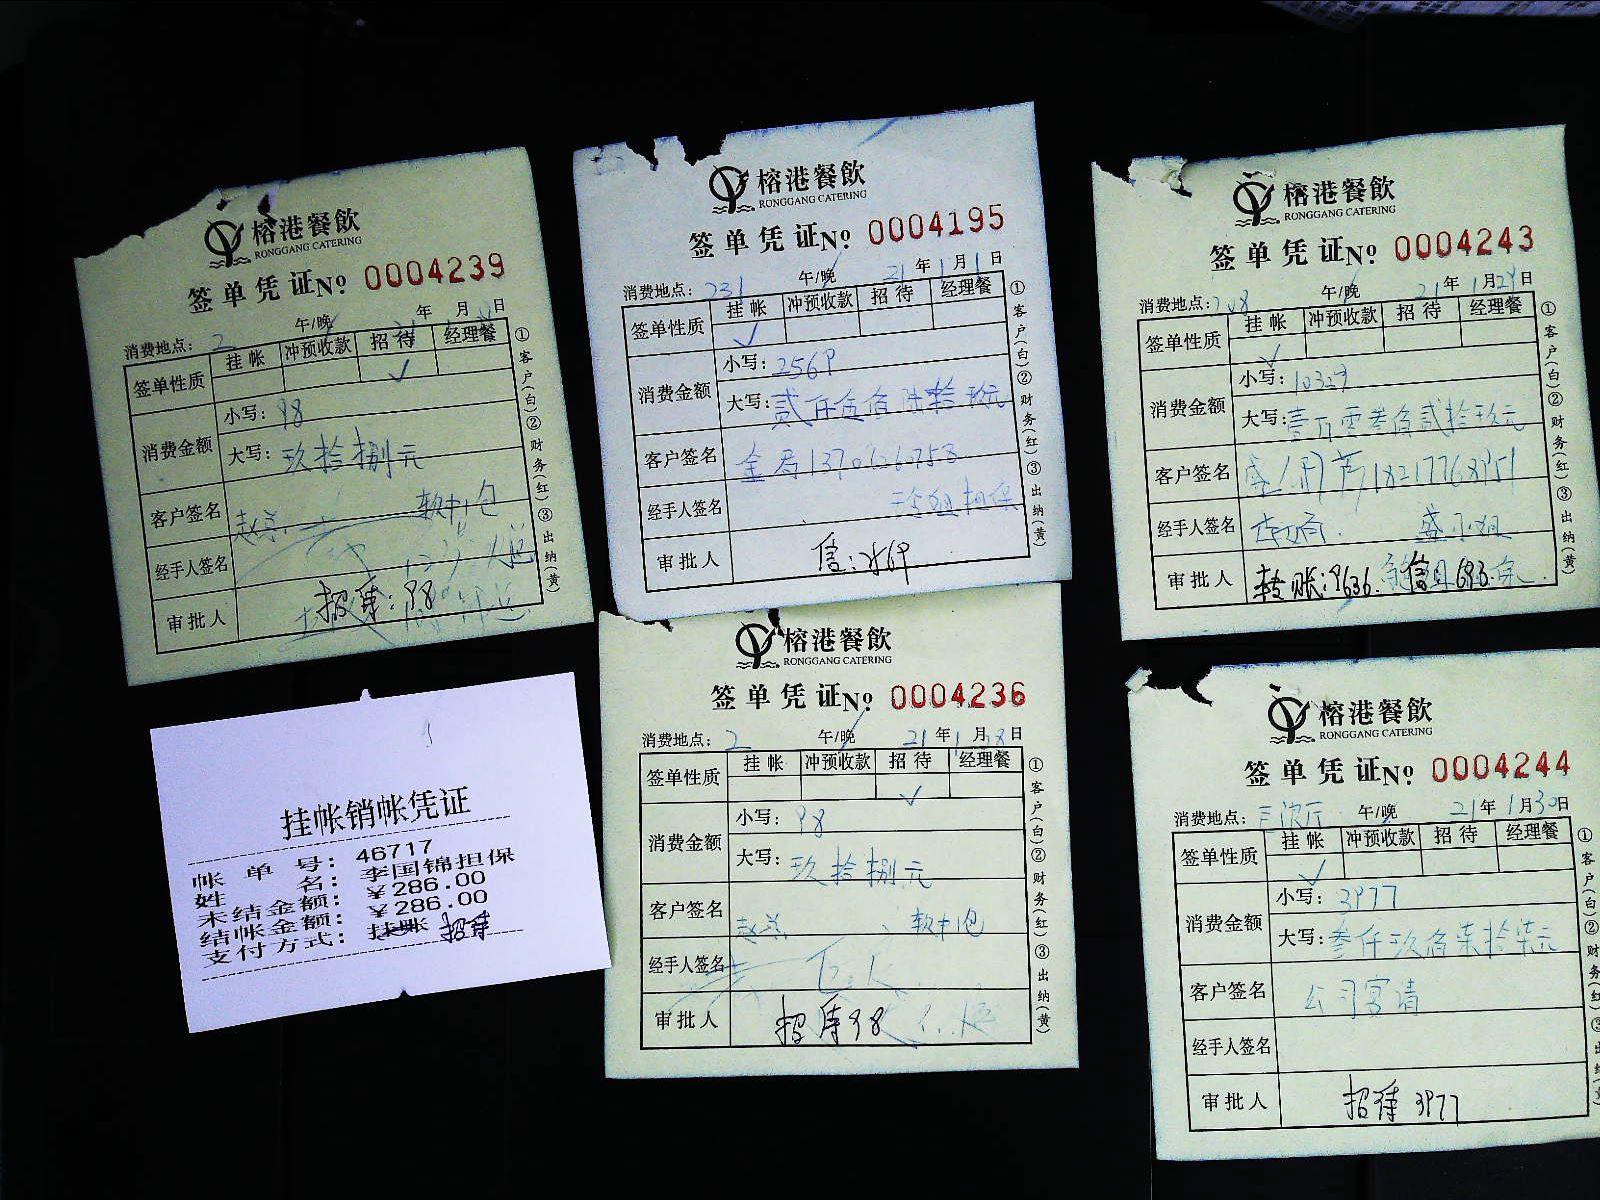 榕港餐飲
RONGGANG CATERING
签单凭证No 0004239
消费地点: 2 午/晚 年 月 日
签单性质 挂帐 冲预收款 招待 经理餐
✓
消费金额 小写: 98
大写: 玖拾捌元
客户签名 软中1包
经手人签名
审批人 招待:98
①客户(白)②财务(红)③出纳(黄)
榕港餐飲
RONGGANG CATERING
签单凭证No 0004195
消费地点: 231 午/晚 21年1月1日
签单性质 挂帐 冲预收款 招待 经理餐
✓
消费金额 小写: 2569
大写: 贰仟伍佰陆拾玖元
客户签名
经手人签名 担保
审批人 信:2569
①客户(白)②财务(红)③出纳(黄)
榕港餐飲
RONGGANG CATERING
签单凭证No 0004243
消费地点: 208 午/晚 21年1月29日
签单性质 挂帐 冲预收款 招待 经理餐
✓
消费金额 小写: 10329
大写: 壹万零叁佰贰拾玖元
客户签名 18217768951
经手人签名 盛小姐
审批人 转账:9636. 信用693.
①客户(白)②财务(红)③出纳(黄)
挂帐销帐凭证
帐单号: 46717
姓名: 李国锦担保
未结金额: ¥286.00
结帐金额: ¥286.00
支付方式: 挂账 招待
榕港餐飲
RONGGANG CATERING
签单凭证No 0004236
消费地点: 2 午/晚 21年1月28日
签单性质 挂帐 冲预收款 招待 经理餐
✓
消费金额 小写: 98
大写: 玖拾捌元
客户签名 软中1包
经手人签名
审批人 招待98
①客户(白)②财务(红)③出纳(黄)
榕港餐飲
RONGGANG CATERING
签单凭证No 0004244
消费地点: 午/晚 21年1月30日
签单性质 挂帐 冲预收款 招待 经理餐
✓
消费金额 小写: 3977
大写: 叁仟玖佰柒拾柒元
客户签名 公司宴请
经手人签名
审批人 招待 3977
①客户(白)②财务(红)③出纳(黄)